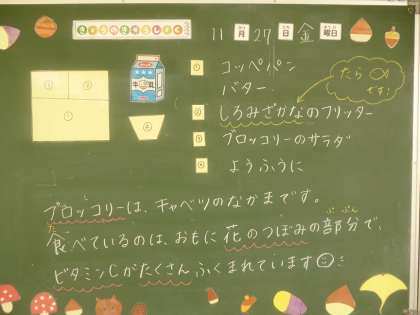 きょうのきゅうしょく
11月27日金曜日
① コッペパン
バター
② しろみざかなのフリッター
たら です!
③ ブロッコリーのサラダ
④ ようふうに
牛乳
ブロッコリーは、キャベツのなかまです。
食べているのは、おもに花のつぼみの部分で、
ぶぶん
ビタミンCがたくさんふくまれています